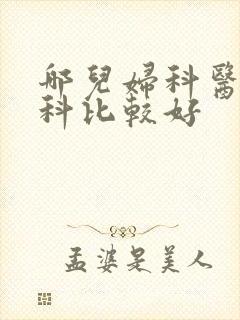 哪兒婦科醫
科比較好
孟婆是美人